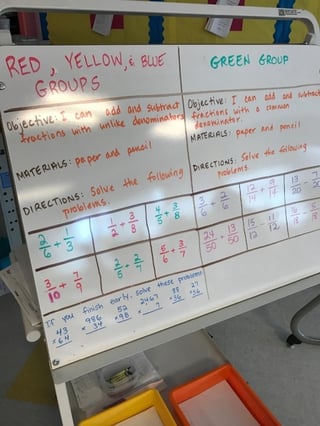 RED, YELLOW, & BLUE
GROUPS
Objective: I can add and subtract
fractions with unlike denominators
MATERIALS: paper and pencil
DIRECTIONS: Solve the following
problems.
2/6 + 1/3
1/2 + 3/8
4/5 + 3/8
3/10 + 7/9
2/5 + 2/4
5/6 + 3/7
If you finish early, solve these problems!
43 986 52 2467 88 27
×64 × 34 ×98 × 7 ×36 ×56
GREEN GROUP
Objective: I can add and subtract
fractions with a common
denominator.
MATERIALS: paper and pencil
DIRECTIONS: Solve the following
problems.
3/6 + 2/6
12/14 + 9/14
24/50 + 13/50
15/12 - 11/12